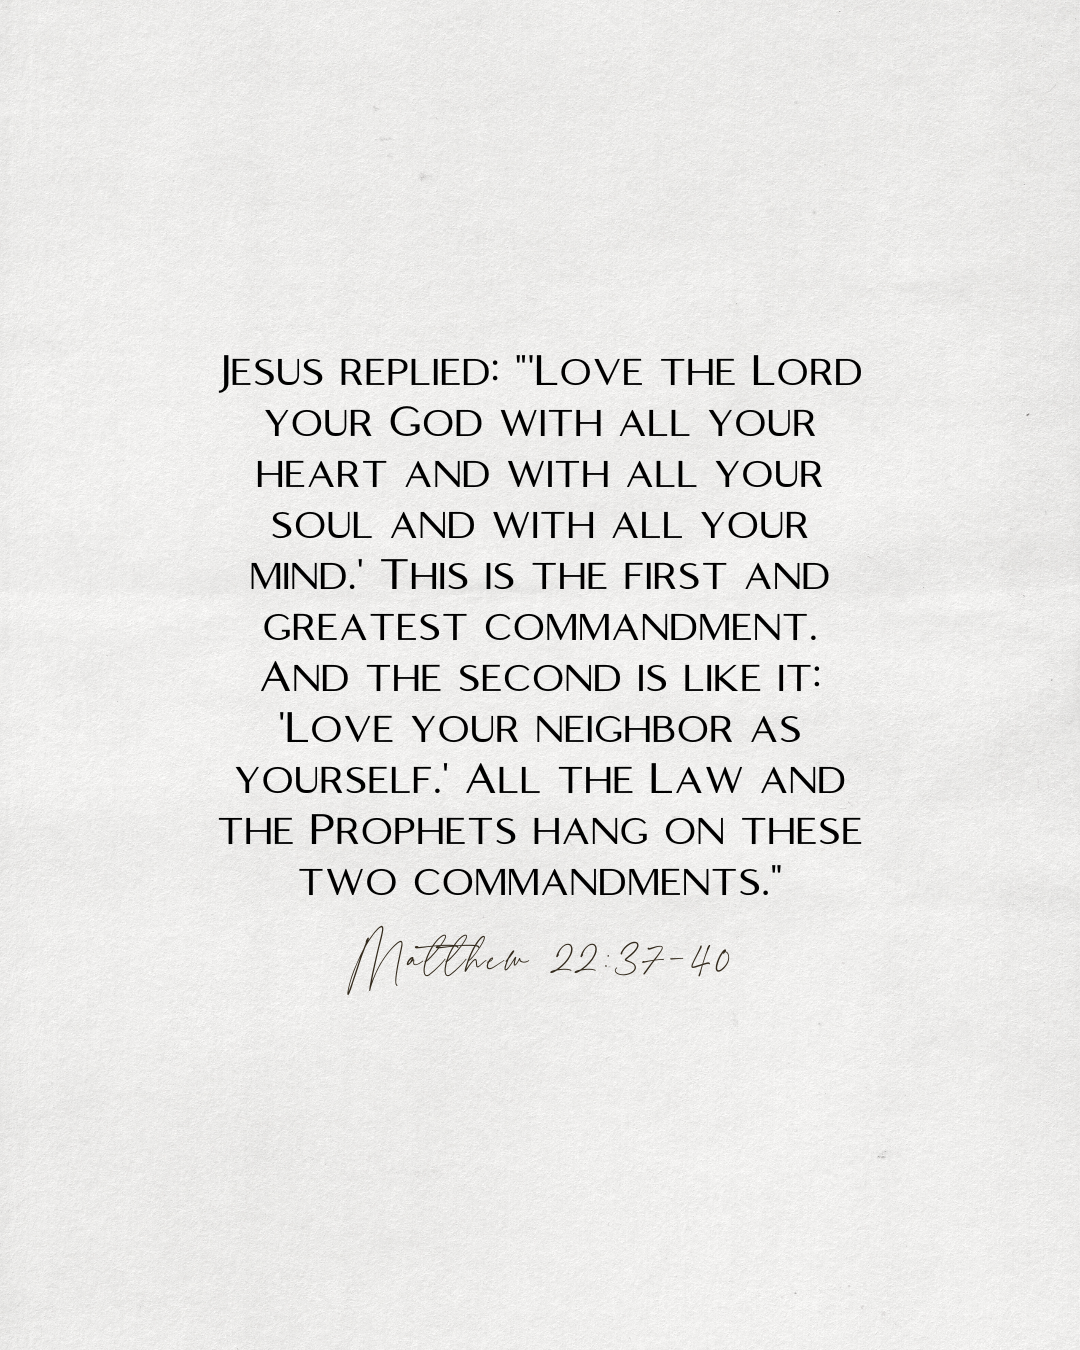 Jesus replied: "'Love the Lord
your God with all your
heart and with all your
soul and with all your
mind.' This is the first and
greatest commandment.
And the second is like it:
'Love your neighbor as
yourself.' All the Law and
the Prophets hang on these
two commandments."
Matthew 22:37-40